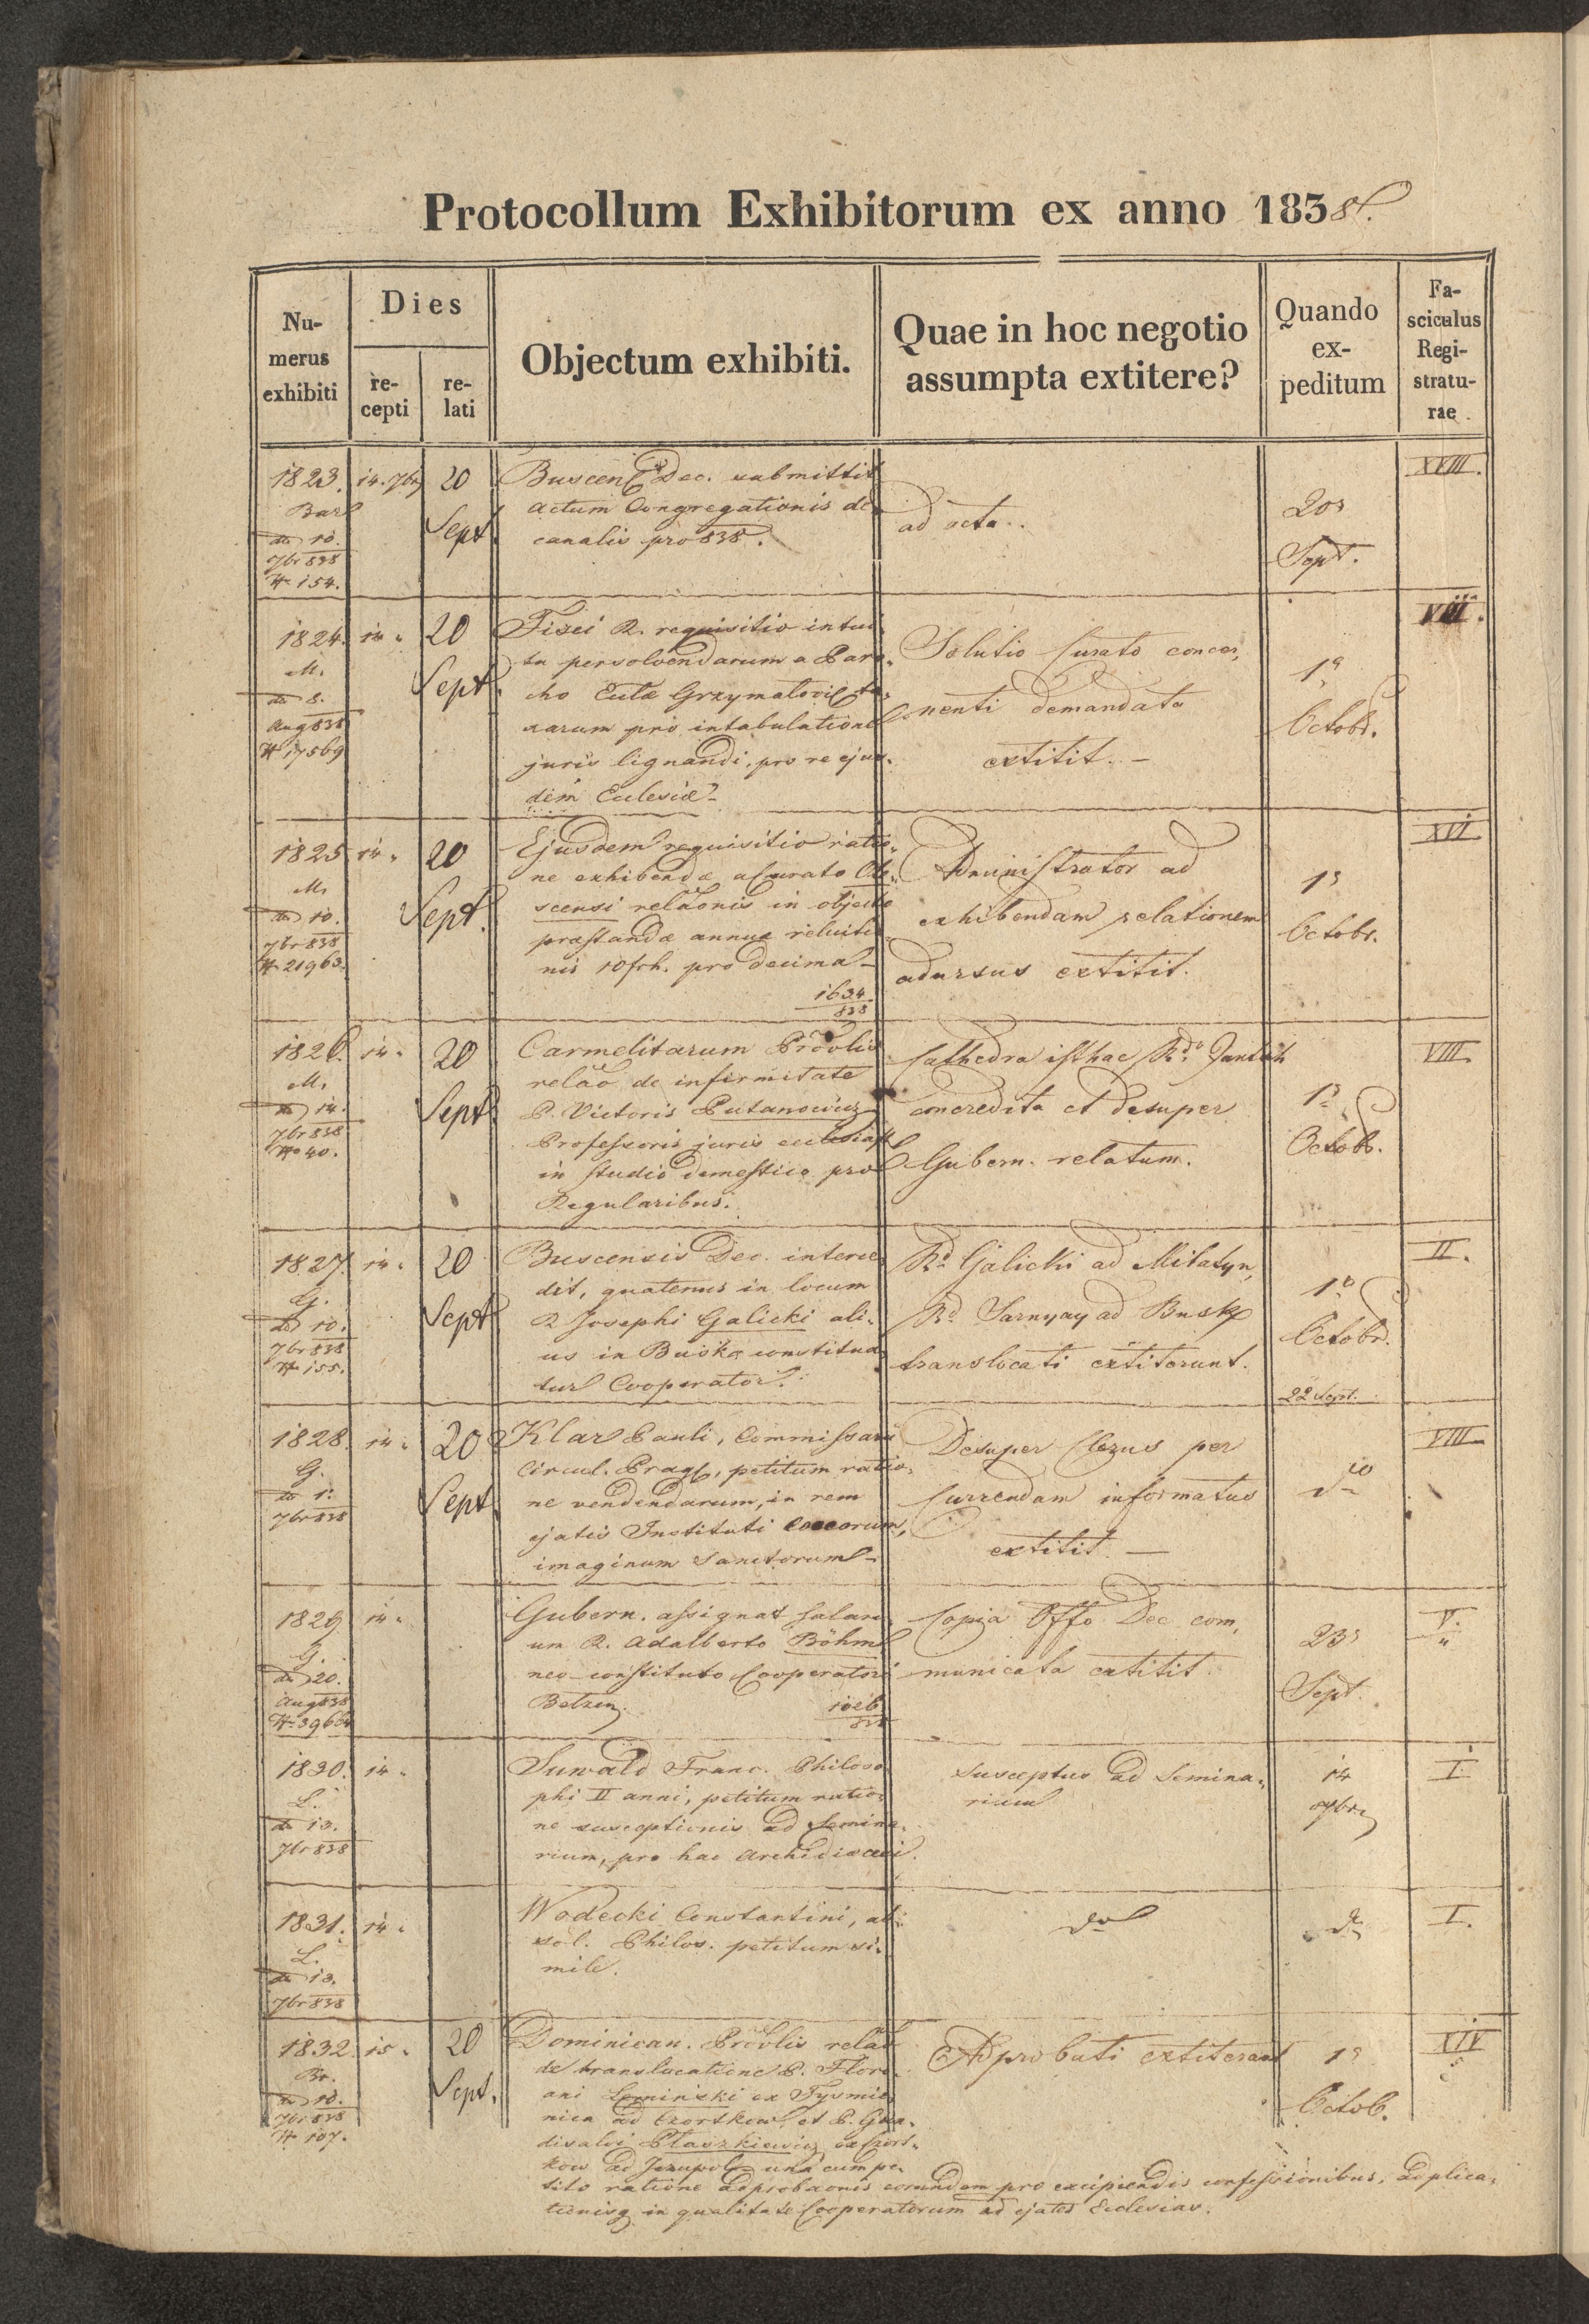 Protocollum Exhibitorum ex anno 1838.
Numerus exhibiti
Dies
recepti
relati
Objectum exhibiti.
Quae in hoc negotio
assumpta extitere?
Quando
ex-
peditum
Fa-
sciculus
Regi-
stratu-
rae
1823. 14. 7br 20
Sept.
10.
7br 838
N 154.
Buscen. Dec. submittit
actum Congregationis de-
canalis pro 838.
ad acta.
20
Sept.
XVIII.
1824. 14 20
Sept.
M.
8.
Aug 838
N 17569
Fisci R. requisitio intui-
tu persolvendarum a Paro-
cho Ecclae Grzymalovien ta-
xarum pro intabulatione
juris lignandi, pro re ejus-
dem Ecclesiae
Solutio Curato concer-
nenti demandata
extitit.
1
Octobr.
VIII.
1825 14 20
Sept.
M.
10.
7br 838
N 21963.
Ejusdem requisitio ratio-
ne exhibendae a Curato
scensi relaonis in objecto
praestandae annuae reluitio-
nis 10 frh. pro decima
1634
838
Administrator ad
exhibendam relationem
adursus extitit.
1
Octobr.
XVI
1826. 14 20
Sept.
M.
14.
7br 838
N 40.
Carmelitarum Provlis
relao de infirmitate
P. Victoris Putanowicz
Professoris juris ecclesiast
in studio domestico pro
Regularibus.
Cathedra isthac Rdo
concredita et desuper
Gubern. relatum.
1
Octob.
VIII.
1827. 14 20
Sept
G.
10.
7br 838
N 155.
Buscensis Dec. interce-
dit, quatenus in locum
R Josephi Galicki ali-
us in Busko constitua-
tur Cooperator.
Rd Galicki ad Milatyn,
Rd Sarnyay ad Busk
translocati extiterunt.
1
Octobr.
22 Sept.
II.
1828. 14 20
Sept
G.
1.
7br 838
Klar Pauli, Commissarii
Circul. Prag, petitum ratio-
ne vendendarum, in rem
ejatis Instituti Coecorum,
imaginum Sanctorum
Desuper Clerus per
Currendam informatus
extitit
VIII
1829. 14
G.
20.
Aug 838
Gubern. assignat salari-
um R. Adalberto Böhm
neo-constituto Cooperatori
Betzen
1026
838
Copia Offo Dec com-
municata extitit.
23
Sept.
V.
1830. 14
L.
13.
7br 838
Suwald Franc. Philoso-
phi II anni, petitum ratio-
ne susceptionis ad Semina-
rium, pro hac Archidioecesi.
Susceptus ad Semina-
rium
14
7br
I.
1831. 14
L.
13.
7br 838
Wodecki Constantini, ab-
sol. Philos. petitum si-
mile.
I.
1832. 15 20
Sept.
10.
7br 838
N 107.
Dominican. Provlis relao
de translocatione P. Flori-
ani Lominski ex Tysmie-
nica ad Czortkow, et P. Gun-
disalvi Ptaszkiewicz ex Czort-
kow ad Jezupol una cum pe-
tito ratione adprobaonis eorundem pro excipiendis confessionibus, adplica-
tionisq in qualitate Cooperatorum ad ejates Ecclesias.
Adprobati extiterant
1
Octob.
XIV